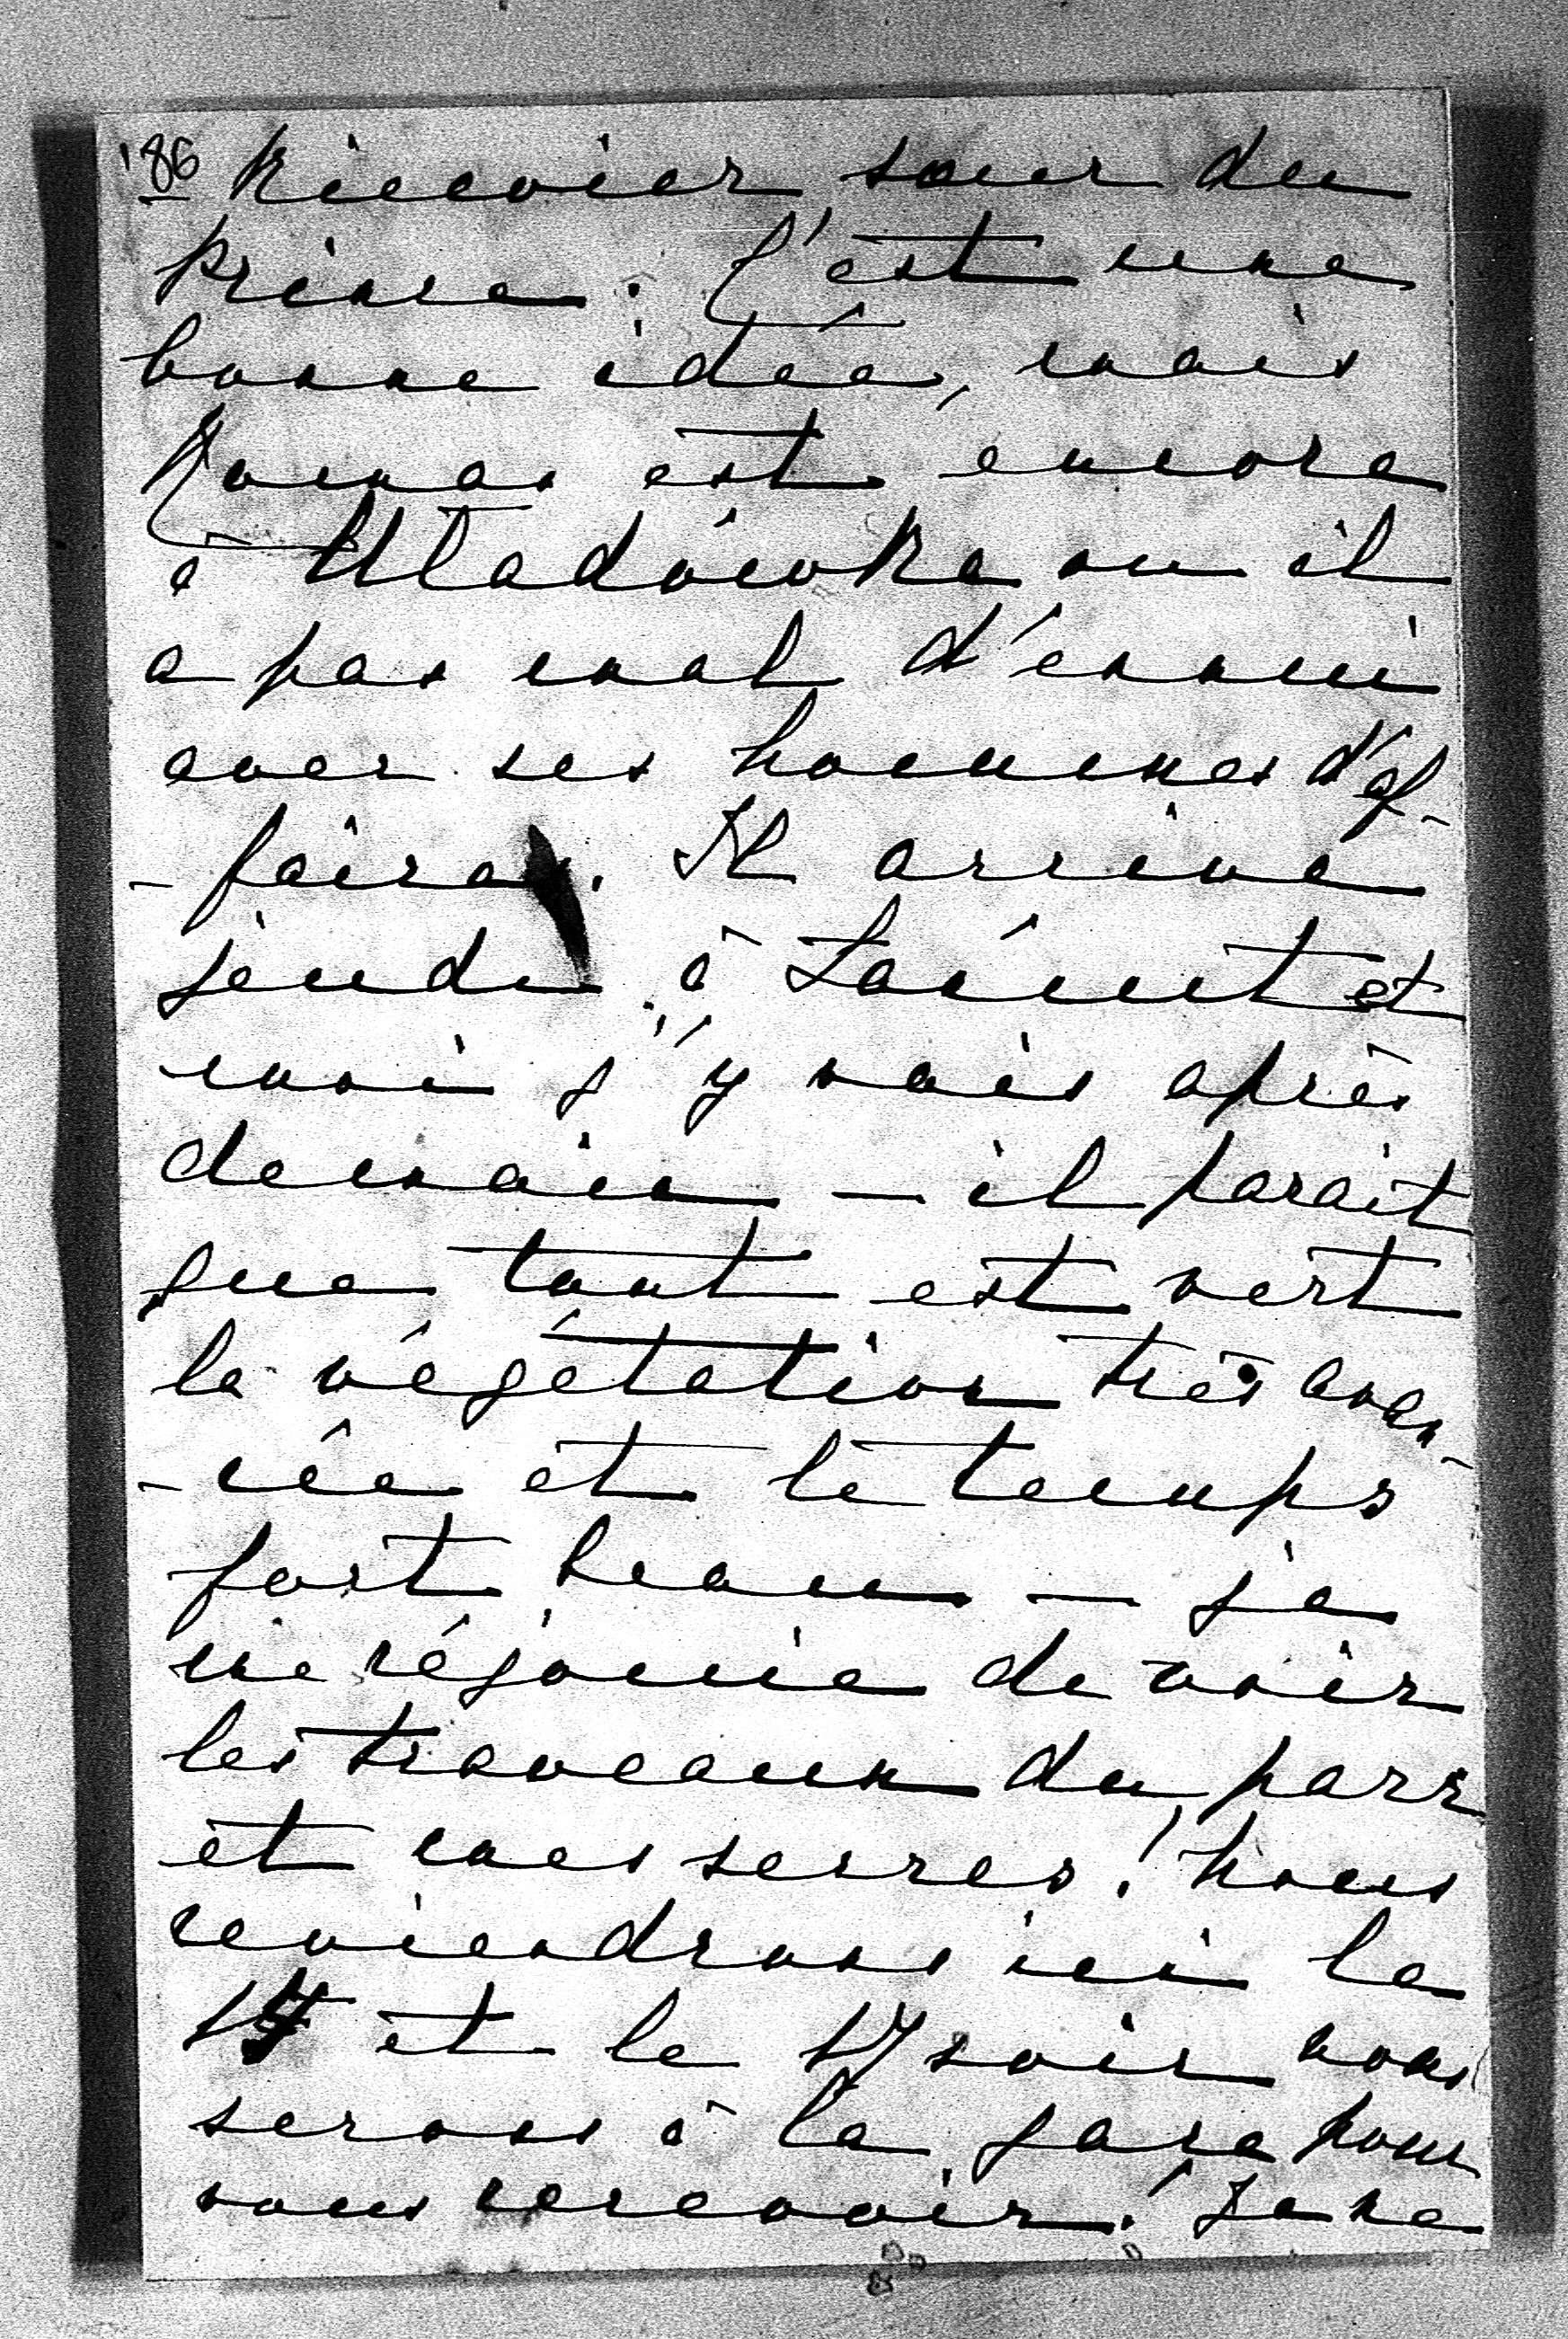 '86 sœur du
Prince. C'est une
bonne idée, mais
Roman est encore
à Uładówka ou il
a pas mal d'ennui
avec ses hommes d'af-
-faires. Il arrive
jeudi à Łańcut et
moi j'y vais après
demain — il parait
que tout est vert
la végétation très avan-
-cée et le temps
fort beau — je
me réjouie de voir
les traveaux du parc
et mes serres! Nous
reviendrons ici le
et le 17 soir nous
serons à la gare pour
vous recevoir! Je ne